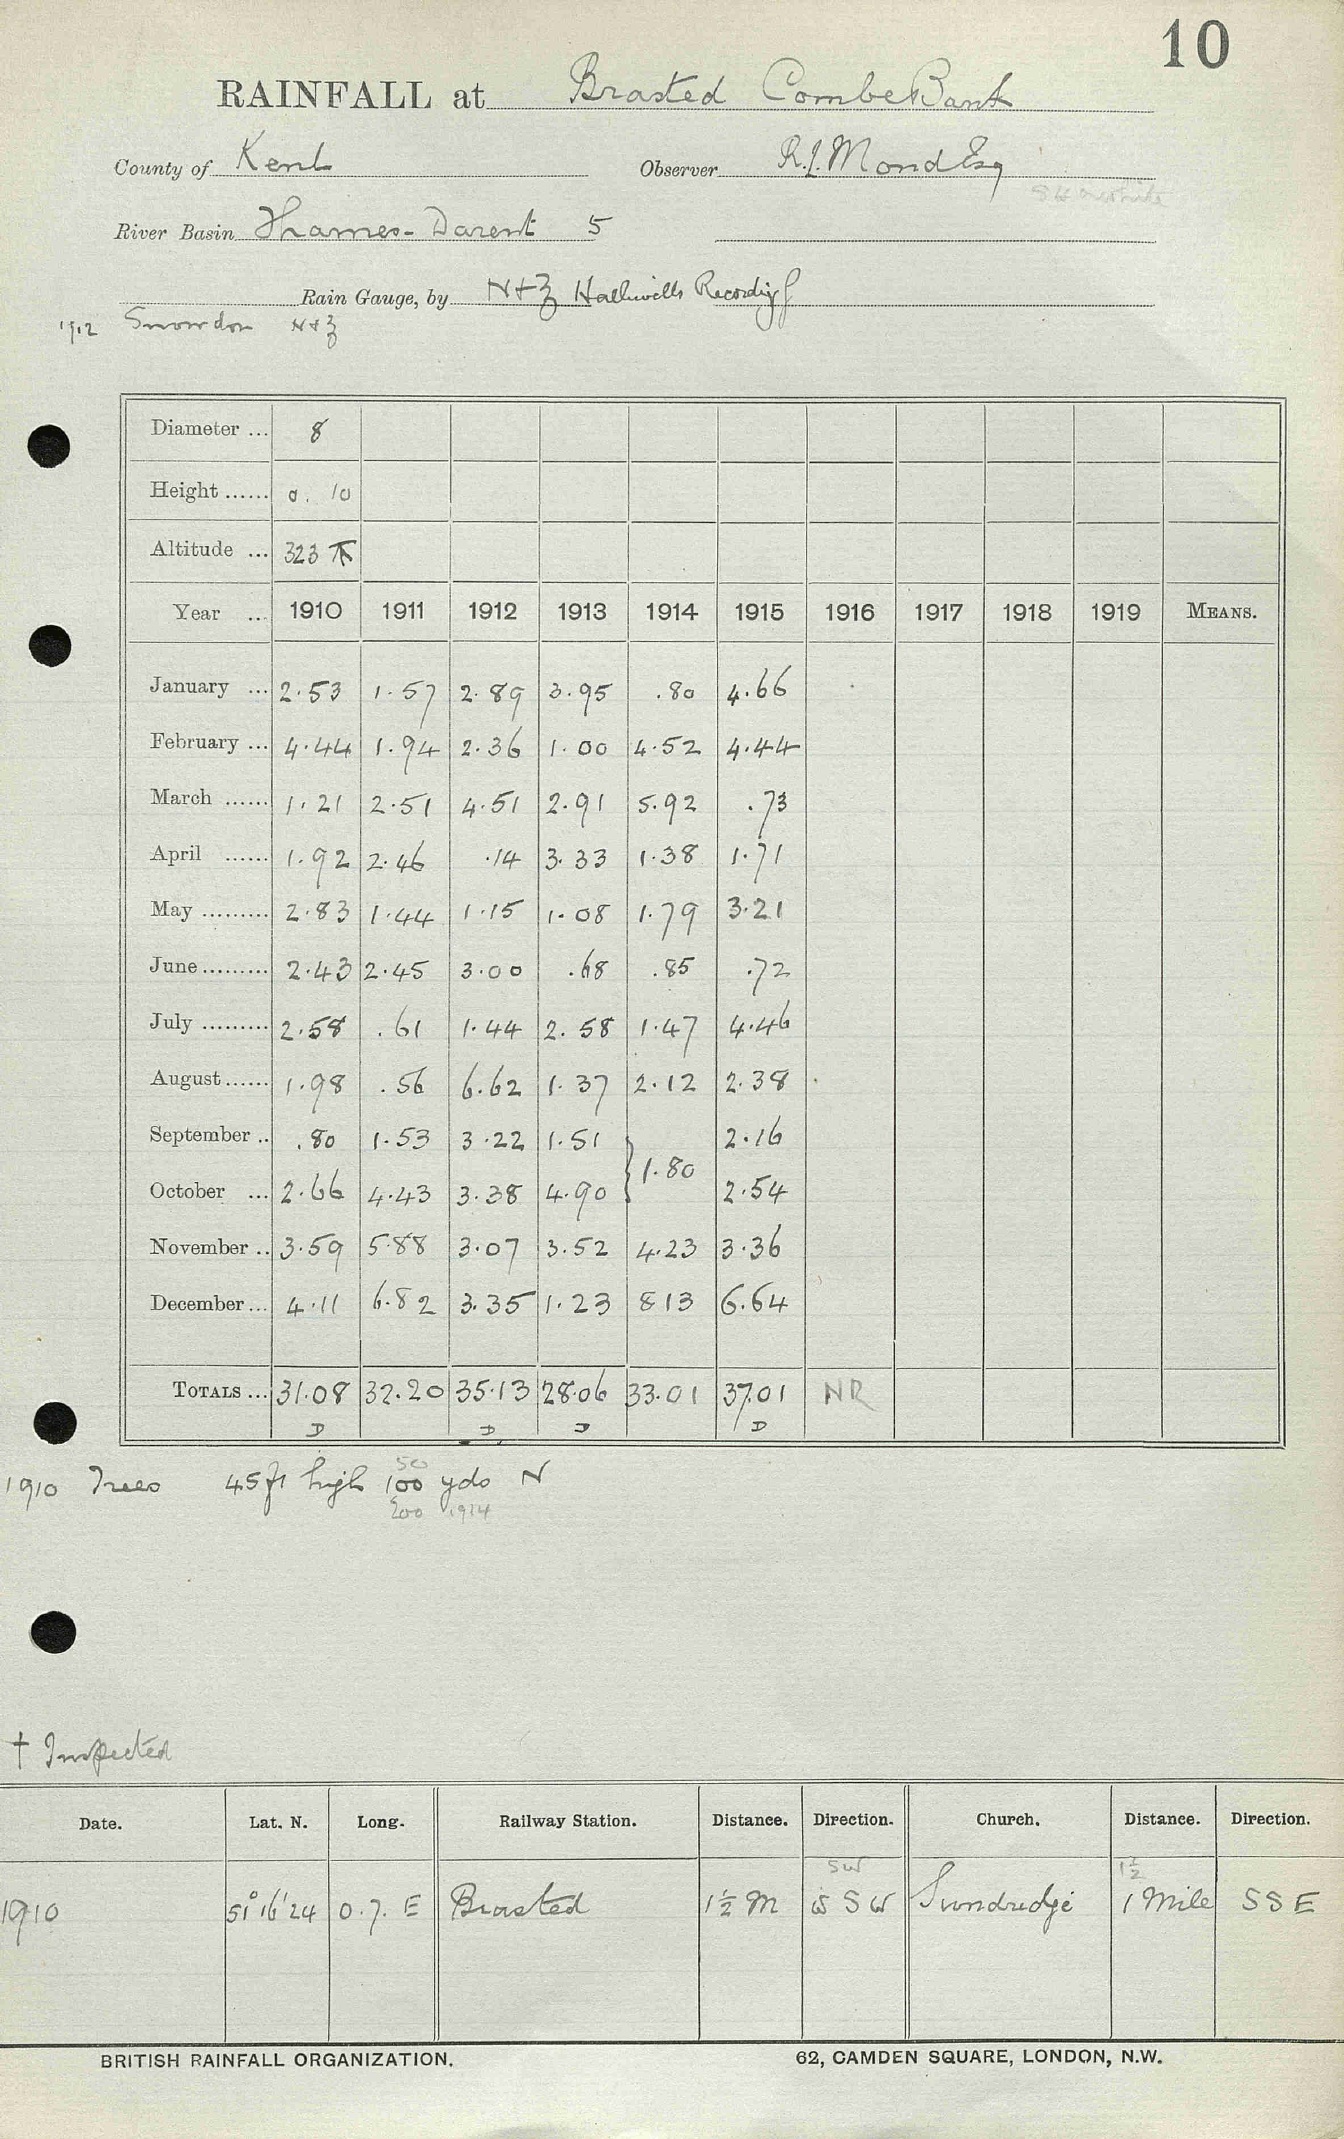 10
RAINFALL at Brasted Combe Bank
County of Kent Observer R.L. Mond Esq
River Basin Thames - Darent 5
Rain Gauge, by N+Z Halliwells Recording
1912 Snowdon N+Z
Diameter ... 8
Height ...... 0. 10
Altitude ... 323
Year ... 1910 1911 1912 1913 1914 1915 1916 1917 1918 1919 MEANS.
January ... 2.53 1.57 2.89 3.95 .80 4.66
February ... 4.44 1.94 2.36 1.00 4.52 4.44
March ...... 1.21 2.51 4.51 2.91 5.92 .73
April ...... 1.92 2.46 .14 3.33 1.38 1.71
May ......... 2.83 1.44 1.15 1.08 1.79 3.21
June ......... 2.43 2.45 3.00 .68 .85 .72
July ......... 2.58 .61 1.44 2.58 1.47 4.46
August ...... 1.98 .56 6.62 1.37 2.12 2.38
September .. .80 1.53 3.22 1.51 2.16
} 1.80
October ... 2.66 4.43 3.38 4.90 2.54
November .. 3.59 5.88 3.07 3.52 4.23 3.36
December ... 4.11 6.82 3.35 1.23 8 13 6.64
TOTALS ... 31.08 32.20 35.13 28.06 33.01 37.01 NR
D D D D
50
1910 Trees 45 ft high 100 yds N
200 1914
† Inspected
Date. Lat. N. Long. Railway Station. Distance. Direction. Church. Distance. Direction.
SW 1½
1910 51° 16' 24 0. 7. E Brasted 1½ M W S W Sundridge 1 Mile S S E
BRITISH RAINFALL ORGANIZATION. 62, CAMDEN SQUARE, LONDON, N.W.